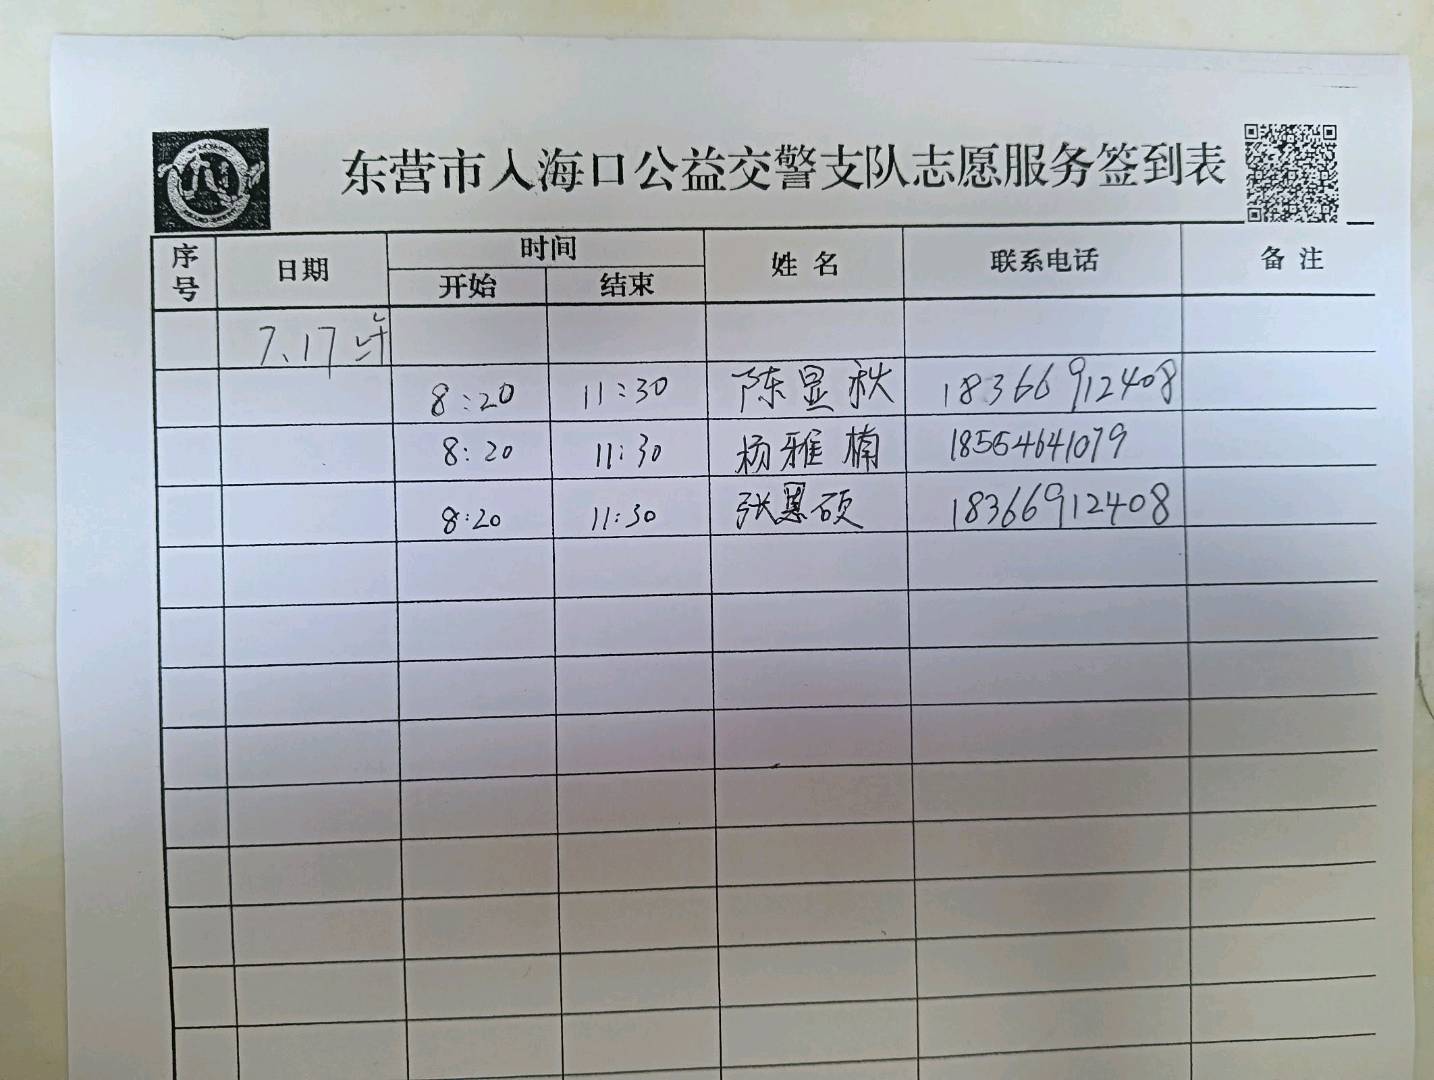 东营市入海口公益交警支队志愿服务签到表
序号 日期 时间 姓名 联系电话 备注
开始 结束
7.17
8:20 11:30 陈显秋 18366912408
8:20 11:30 杨雅楠 18554641079
8:20 11:30 张恩硕 18366912408